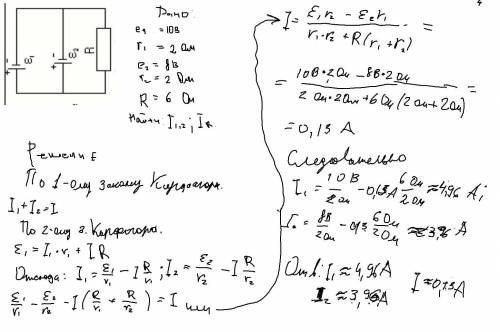 + - ε₁
+ - ε₂
R
Дано:
e₁ = 10В
r₁ = 2 Ом
e₂ = 8В
r₂ = 2 Ом
R = 6 Ом
Найти I₁,₂; I_R
Решение
По 1-ому закому Кирхгофа.
I₁ + I₂ = I
По 2-ому з. Кирхгофа.
ε₁ = I₁ · r₁ + IR
Отсюда: I₁ = ε₁/r₁ − I R/r₁ ; I₂ = ε₂/r₂ − I R/r₂
ε₁/r₁ − ε₂/r₂ − I(R/r₁ + R/r₂) = I или
I = (ε₁r₂ − ε₂r₁)/(r₁·r₂ + R(r₁+r₂)) =
= (10В·2Ом − 8В·2Ом)/(2Ом·2Ом + 6Ом(2Ом+2Ом)) =
= 0,13 А
Следовательно
I₁ = 10В/2Ом − 0,13А 6Ом/2Ом ≈ 4,96 А;
8В/2Ом − 6Ом/2Ом ≈ 3,96 А
Отв: I₁ ≈ 4,96А I ≈ 0,13А
I₂ ≈ 3,96А